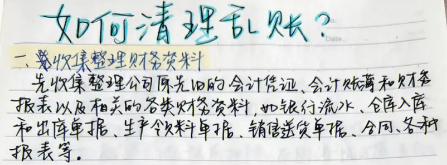 如何清理乱账?
一、收集整理财务资料
先收集整理公司原先旧的会计凭证、会计账簿和财务
报表以及相关的各类财务资料,如银行流水、仓库入库
和出库单据、生产领料单据、销售送货单据、合同、各种
报表等。